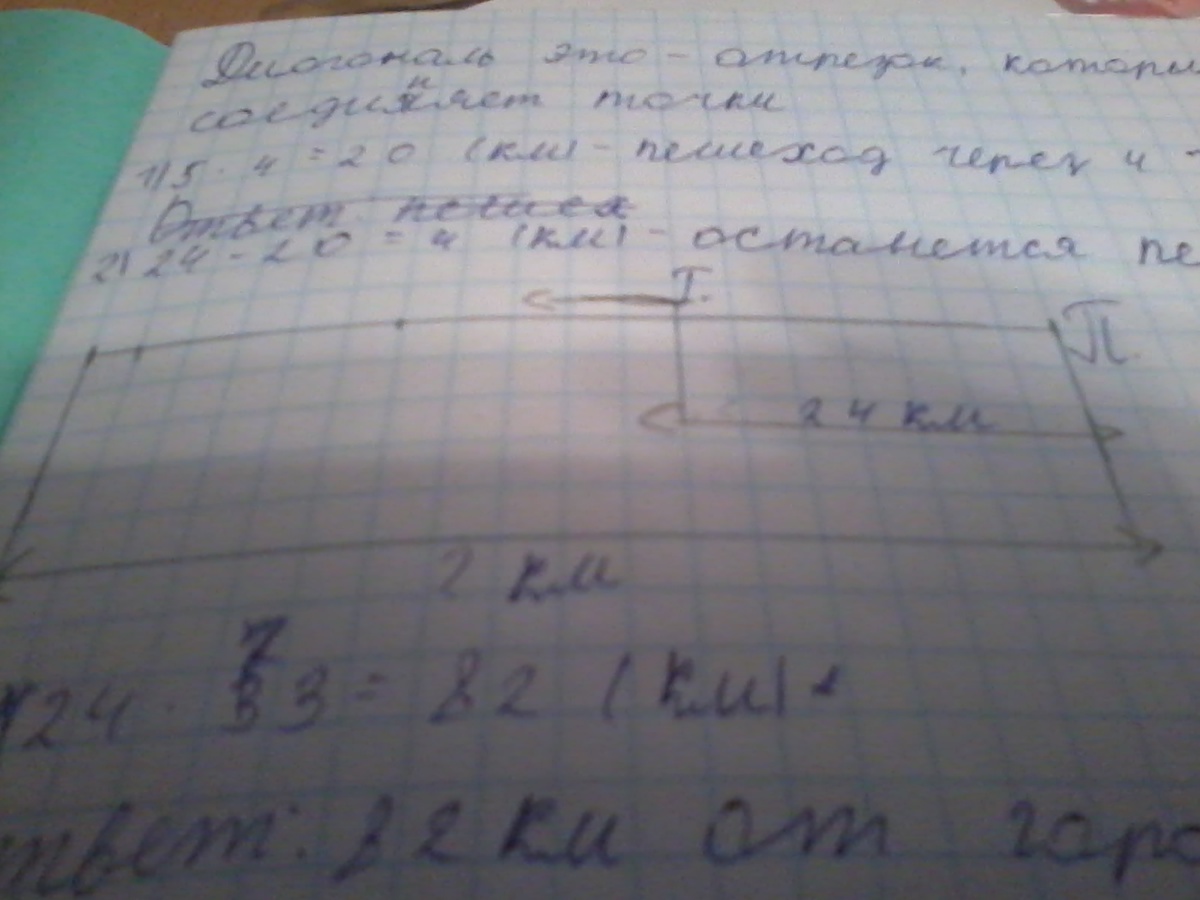 Диогональ это - отрезок, которы
соединяет точки
1) 5 · 4 = 20 (км) - пешеход через 4
Ответ пешех
2) 24 - 20 = 4 (км) - останется пе
Т.
П.
24 км
? км
24 · 3 = 82 (км)
твет: 82 км от горо